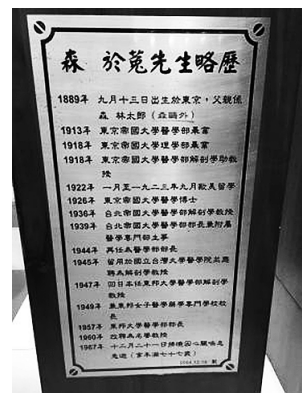 森 於菟先生略歷
1889年 九月十三日出生於東京,父親係
森 林太郎(森鷗外)
1913年 東京帝國大學醫學部畢業
1918年 東京帝國大學理學部畢業
1918年 東京帝國大學醫學部解剖學助教
授
1922年 一月至一九二三年九月歐美留學
1926年 東京帝國大學醫學博士
1936年 台北帝國大學醫學部解剖學教授
1939年 台北帝國大學醫學部部長兼附屬
醫學專門部主事
1944年 再任為醫學部部長
1945年 留用於國立台灣大學醫學院並應
聘為解剖學教授
1947年 回日本任東邦大學醫學部解剖學
教授
1949年 兼東邦女子醫學藥學專門學校校
長
1957年 東邦大學醫學部部長
1960年 改聘為名譽教授
1967年 十二月二十一日掃墻因心臟喘息
逝(享年滿七十七歲)